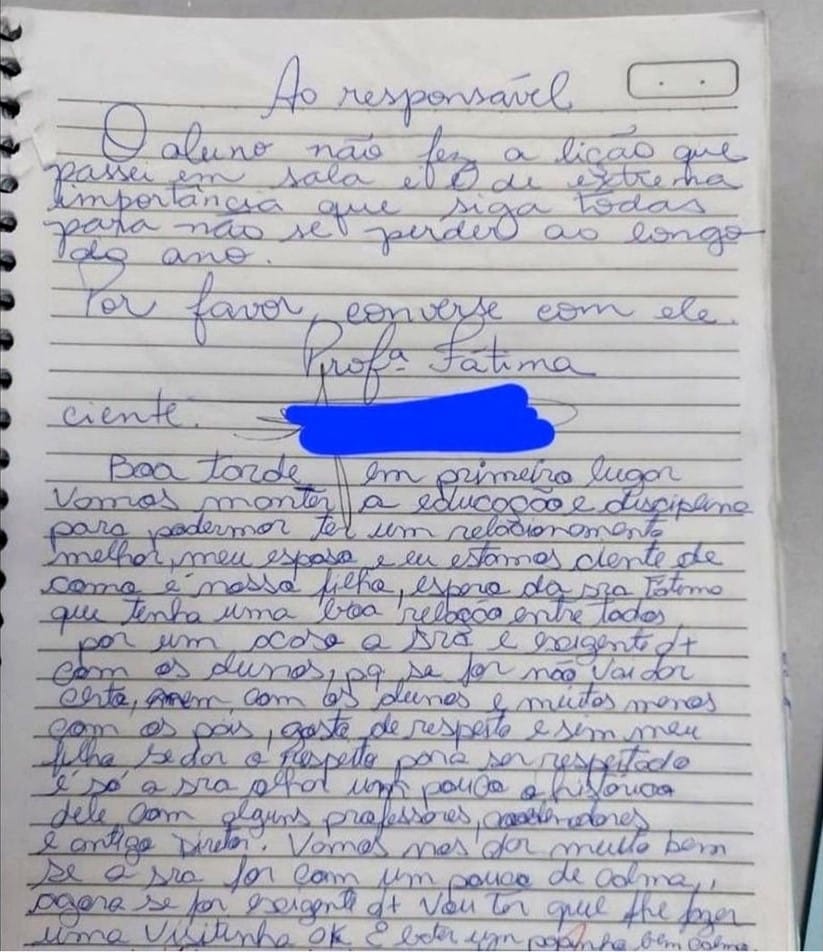 Ao responsável
O aluno não fez a lição que
passei em sala e é de extrema
importância que siga todas
para não se perder ao longo
do ano.
Por favor, converse com ele.
Profª Fátima
ciente.
Boa tarde, em primeiro lugar
Vamos manter a educação e disciplina
para podermor ter um relacionamento
melhor, meu esposo e eu estamos ciente de
como é nosso filho, espero da sra Fátima
que tenha uma boa relação entre todos,
por um acaso a sra é exigente d+
com os alunos, pq se for não vai dar
certo, nem com os alunos e muitos menos
com os pais, gosto de respeito e sim meu
filho se dar o respeito para ser respeitado
é só a sra olhar um pouco a história
dele com alguns professores,
e antigo Diretor. Vamos nos dar muito bem
se a sra for com um pouco de calma,
agora se for exigente d+ vou ter que lhe fazer
uma Visitinha ok. E bater um papinho bem